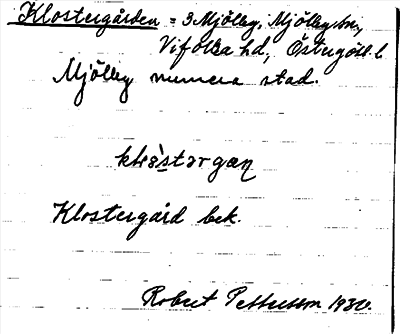 Klostergården = 3 Mjölby, Mjölby sn,
Vifolka hd, Östergötl. l.
Mjölby numera stad.
Klostergård bek.
Robert Pettersson 1932.